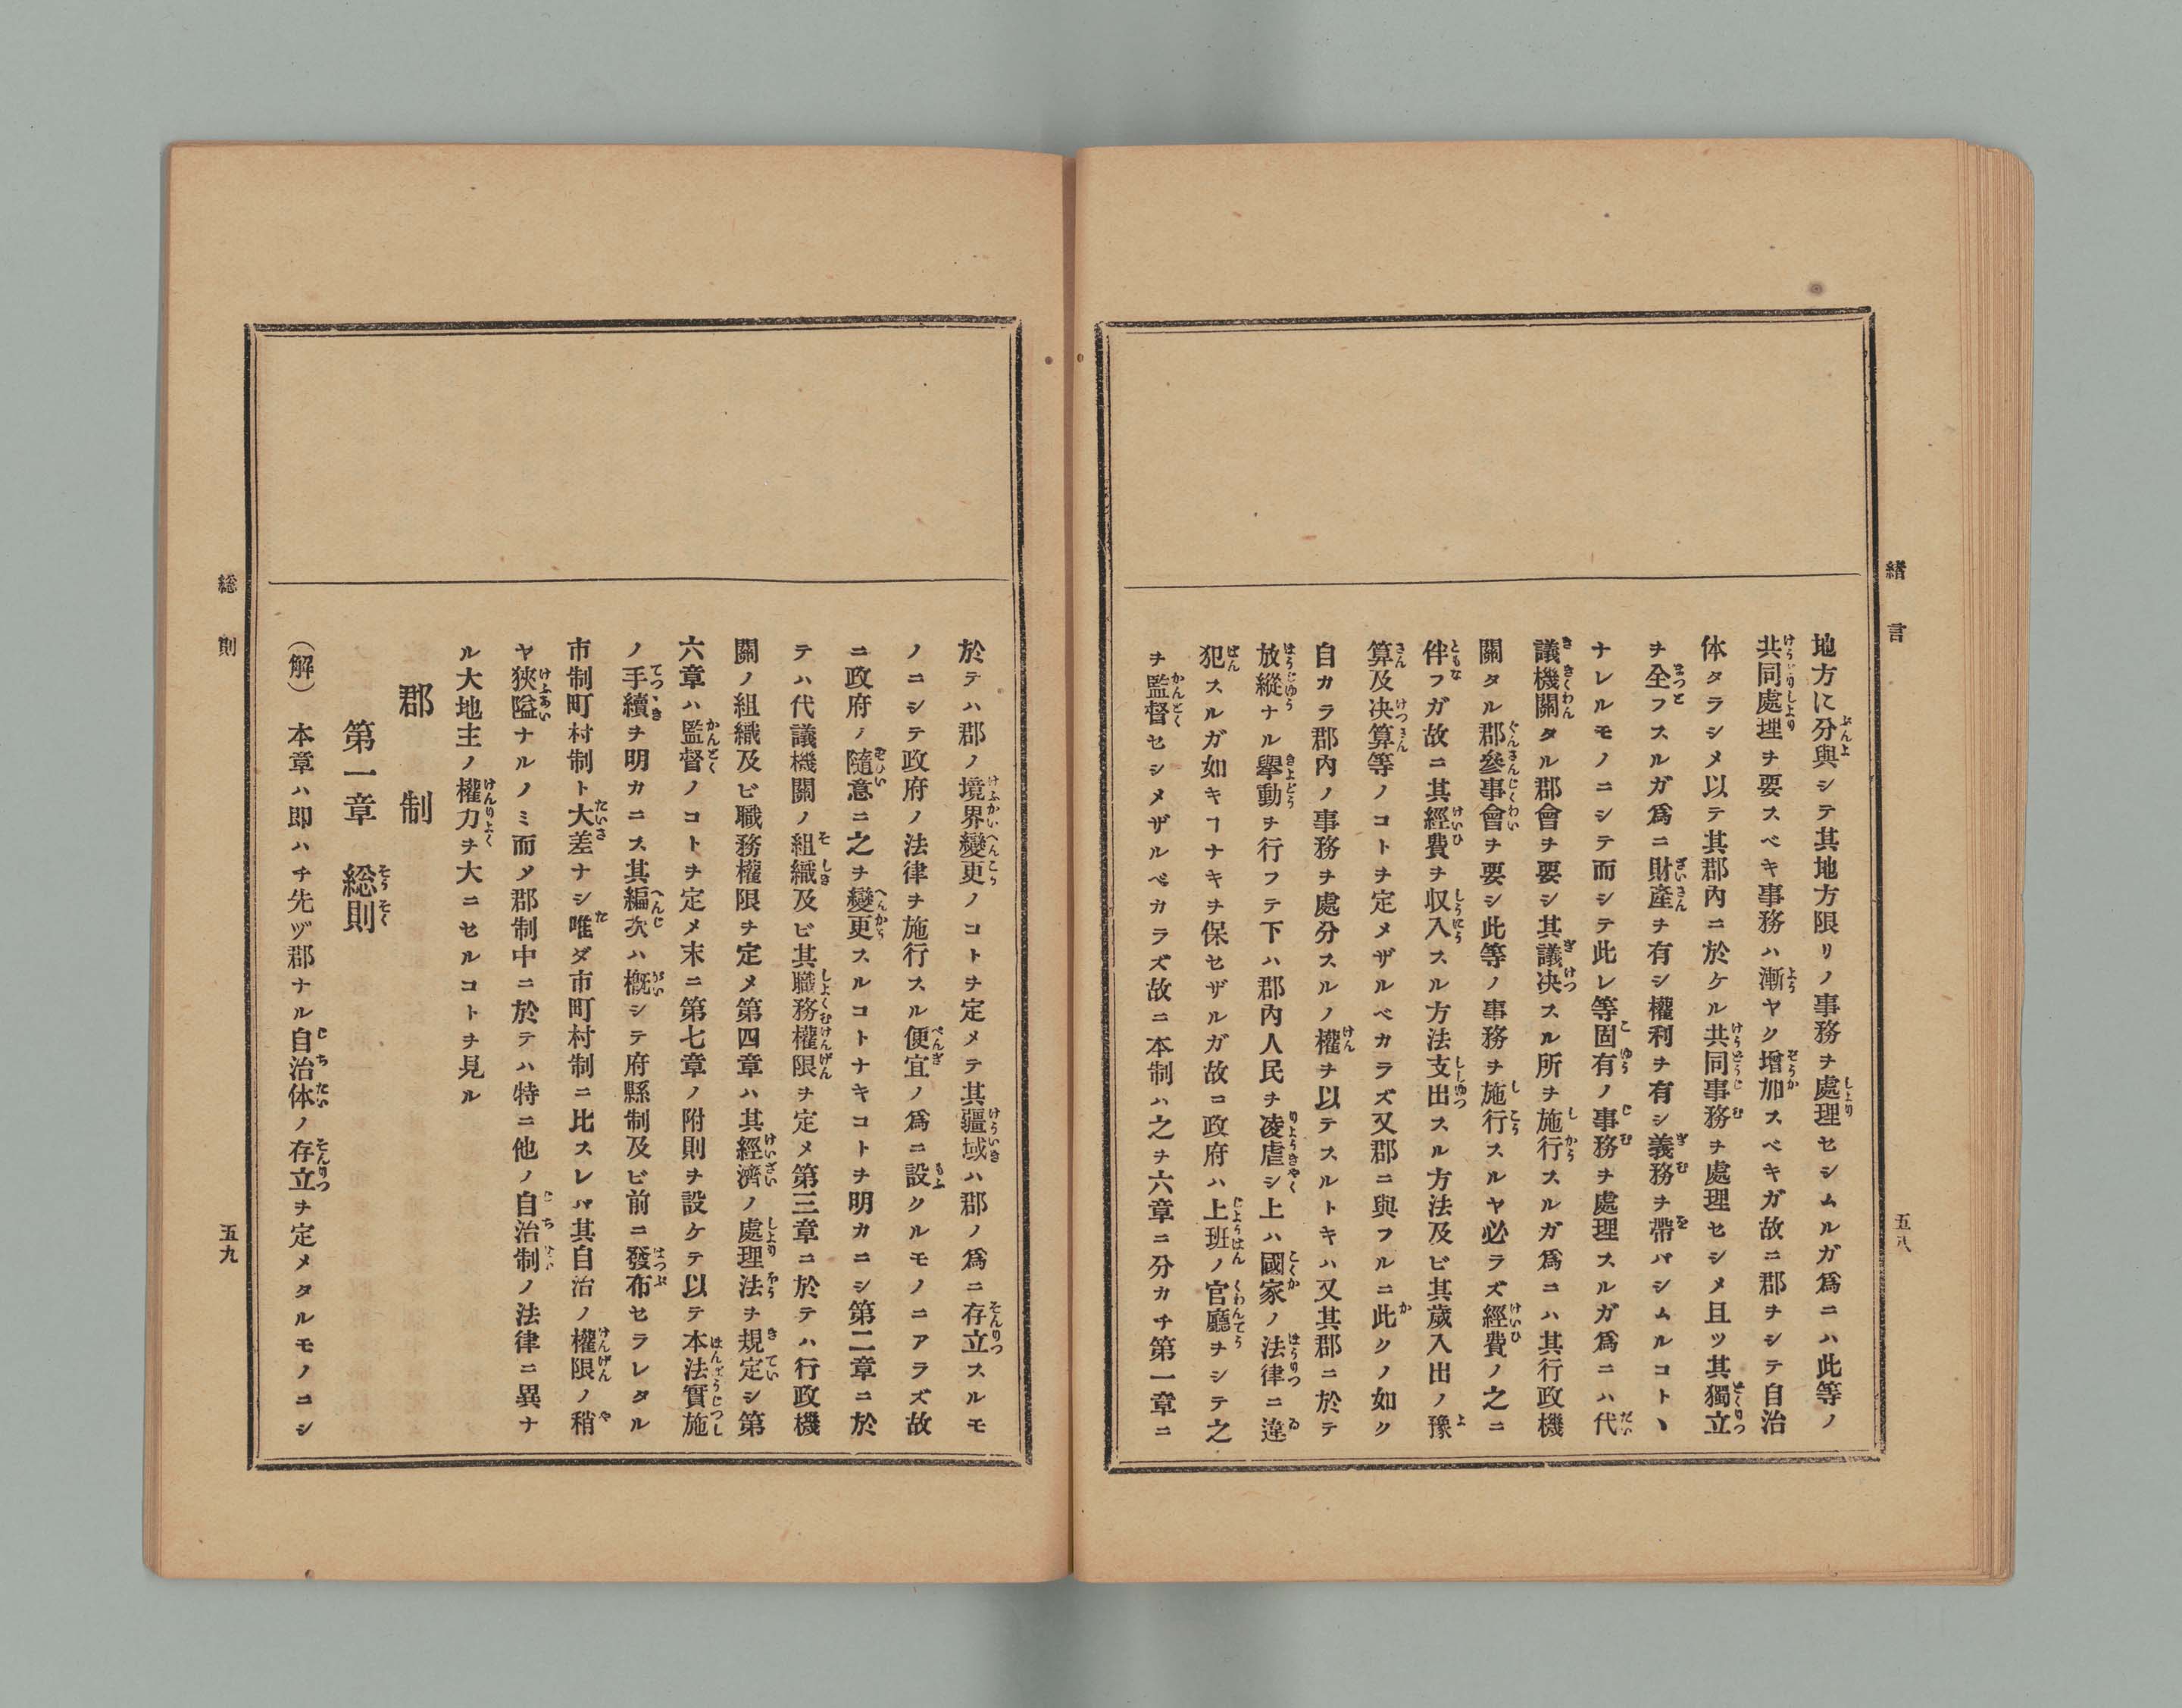 緒言
五八
地方に分與シテ其地方限リノ事務ヲ處理セシムルガ爲ニハ此等ノ
共同處理ヲ要スベキ事務ハ漸ヤク增加スベキガ故ニ郡ヲシテ自治
体タラシメ以テ其郡內ニ於ケル共同事務ヲ處理セシメ且ツ其獨立
ヲ全フスルガ爲ニ財產ヲ有シ權利ヲ有シ義務ヲ帶バシムルコトヽ
ナレルモノニシテ而シテ此レ等固有ノ事務ヲ處理スルガ爲ニハ代
議機關タル郡會ヲ要シ其議决スル所ヲ施行スルガ爲ニハ其行政機
關タル郡參事會ヲ要シ此等ノ事務ヲ施行スルヤ必ラズ經費ノ之ニ
伴フガ故ニ其經費ヲ収入スル方法支出スル方法及ビ其歲入出ノ豫
算及决算等ノコトヲ定メザルベカラズ又郡ニ與フルニ此クノ如ク
自カラ郡內ノ事務ヲ處分スルノ權ヲ以テスルトキハ又其郡ニ於テ
放縱ナル擧動ヲ行フテ下ハ郡內人民ヲ凌虐シ上ハ國家ノ法律ニ違
犯スルガ如キヿナキヲ保セザルガ故コ政府ハ上班ノ官廳ヲシテ之
ヲ監督セシメザルベカラズ故ニ本制ハ之ヲ六章ニ分カチ第一章ニ
於テハ郡ノ境界變更ノコトヲ定メテ其疆域ハ郡ノ爲ニ存立スルモ
ノニシテ政府ノ法律ヲ施行スル便宜ノ爲ニ設クルモノニアラズ故
ニ政府ノ隨意ニ之ヲ變更スルコトナキコトヲ明カニシ第二章ニ於
テハ代議機關ノ組織及ビ其職務權限ヲ定メ第三章ニ於テハ行政機
關ノ組織及ビ職務權限ヲ定メ第四章ハ其經濟ノ處理法ヲ規定シ第
六章ハ監督ノコトヲ定メ末ニ第七章ノ附則ヲ設ケテ以テ本法實施
ノ手續ヲ明カニス其編次ハ槪シテ府縣制及ビ前ニ發布セラレタル
市制町村制ト大差ナシ唯ダ市町村制ニ比スレバ其自治ノ權限ノ稍
ヤ狹隘ナルノミ而メ郡制中ニ於テハ特ニ他ノ自治制ノ法律ニ異ナ
ル大地主ノ權力ヲ大ニセルコトヲ見ル
郡制
第一章 総則
（解） 本章ハ即ハチ先ヅ郡ナル自治体ノ存立ヲ定メタルモノコシ
総則
五九